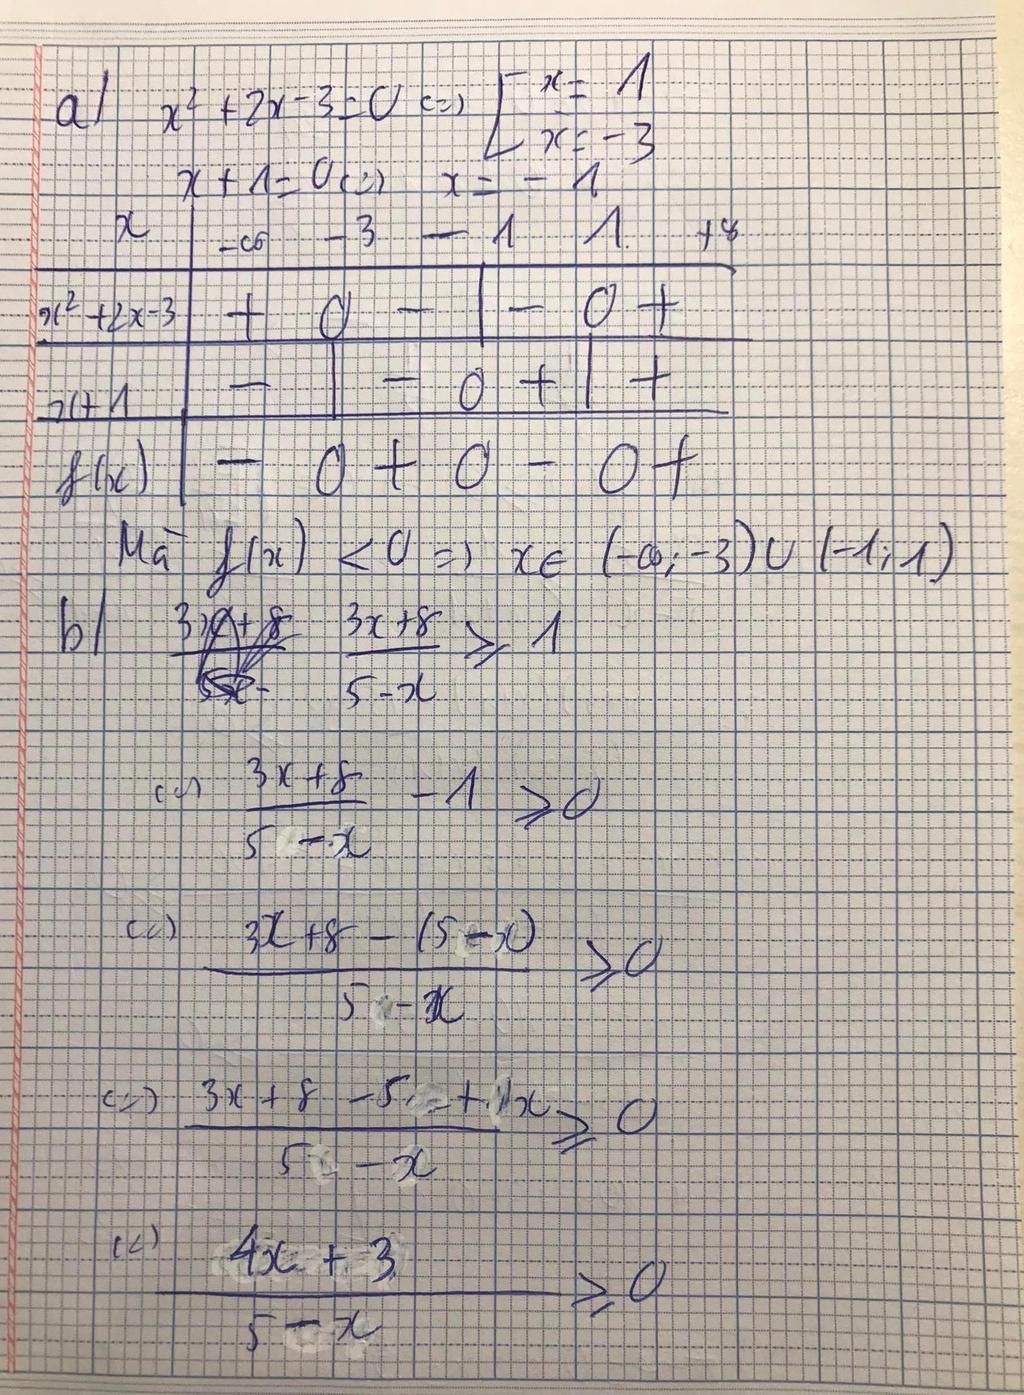 a/ x² + 2x - 3 = 0 (=) [ x = 1
x = -3
x + 1 = 0 (=) x = -1
x -∞ -3 -1 1 +∞
x² + 2x - 3 + 0 - | - 0 +
x + 1 - | - 0 + | +
f(x) - 0 + 0 - 0 +
Mà f(x) < 0 => x ∈ (-∞; -3) ∪ (-1; 1)
b/ (3x+8)/(5-x) ≥ 1
(=) (3x+8)/(5-x) - 1 ≥ 0
(=) (3x+8-(5-x))/(5-x) ≥ 0
(=) (3x+8-5+x)/(5-x) ≥ 0
(=) (4x+3)/(5-x) ≥ 0